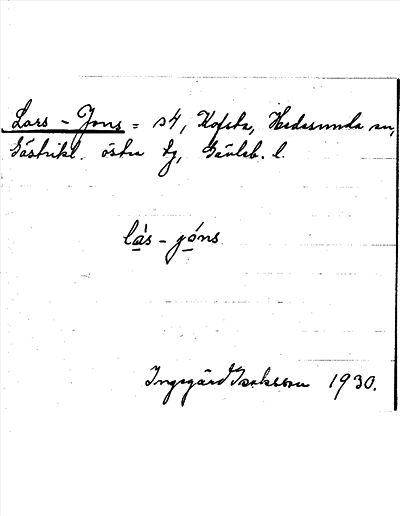 Lars - Jons = s4, Kofsta, Hedesunda sn,
Gästrikl. östra tg, Gävleb. l.
lа̀s - yóns
Ingegärd Isaksson 1930.